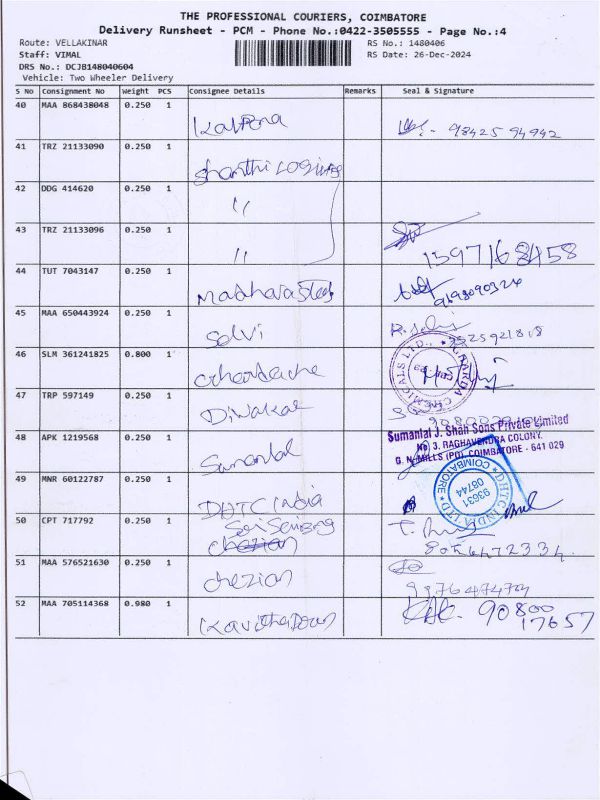 THE PROFESSIONAL COURIERS, COIMBATORE
Delivery Runsheet - PCM - Phone No.:0422-3505555 - Page No.:4
Route: VELLAKINAR RS No.: 1480406
Staff: VIMAL RS Date: 26-Dec-2024
DRS No.: DCJB148040604
Vehicle: Two Wheeler Delivery
S No Consignment No Weight PCS Consignee Details Remarks Seal & Signature
40 MAA 868438048 0.250 1
Kalpana 98425 94942
41 TRZ 21133090 0.250 1
Shanthi
42 DDG 414620 0.250 1
"
43 TRZ 21133096 0.250 1
"
44 TUT 7043147 0.250 1
Madhava Steels
45 MAA 650443924 0.250 1
Selvi
46 SLM 361241825 0.800 1
GHARDA CHEMICALS LTD.,
47 TRP 597149 0.250 1
Diwakar
48 APK 1219568 0.250 1
Sumanlal
Sumanlal J. Shah Sons Private Limited
No 3, RAGHAVENDRA COLONY,
G. N. MILLS (PO), COIMBATORE - 641 029
49 MNR 60122787 0.250 1
DHTC India
DHTC INDIA LTD COIMBATORE
93631
08744
50 CPT 717792 0.250 1
51 MAA 576521630 0.250 1
chezian
52 MAA 705114368 0.980 1
90800
17657